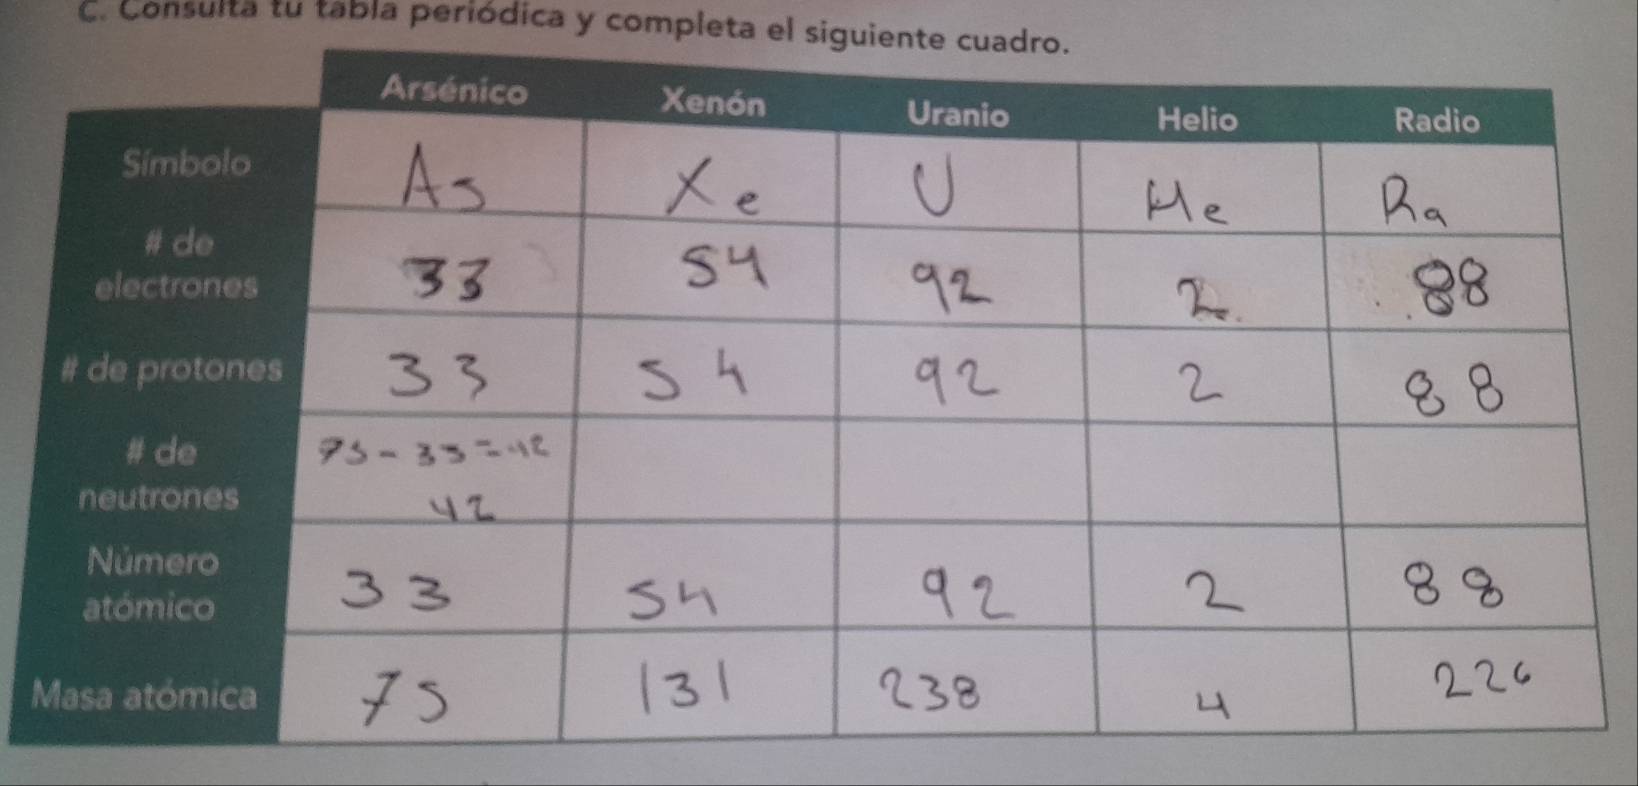 C. Consulta tu tabla periódica y completa el siguiente cuadro.
Arsénico Xenón Uranio Helio Radio
Símbolo As Xe U He Ra
# de electrones 33 54 92 2 88
# de protones 33 54 92 2 88
# de neutrones 75 - 33 = 42
42
Número atómico 33 54 92 2 88
Masa atómica 75 131 238 4 226